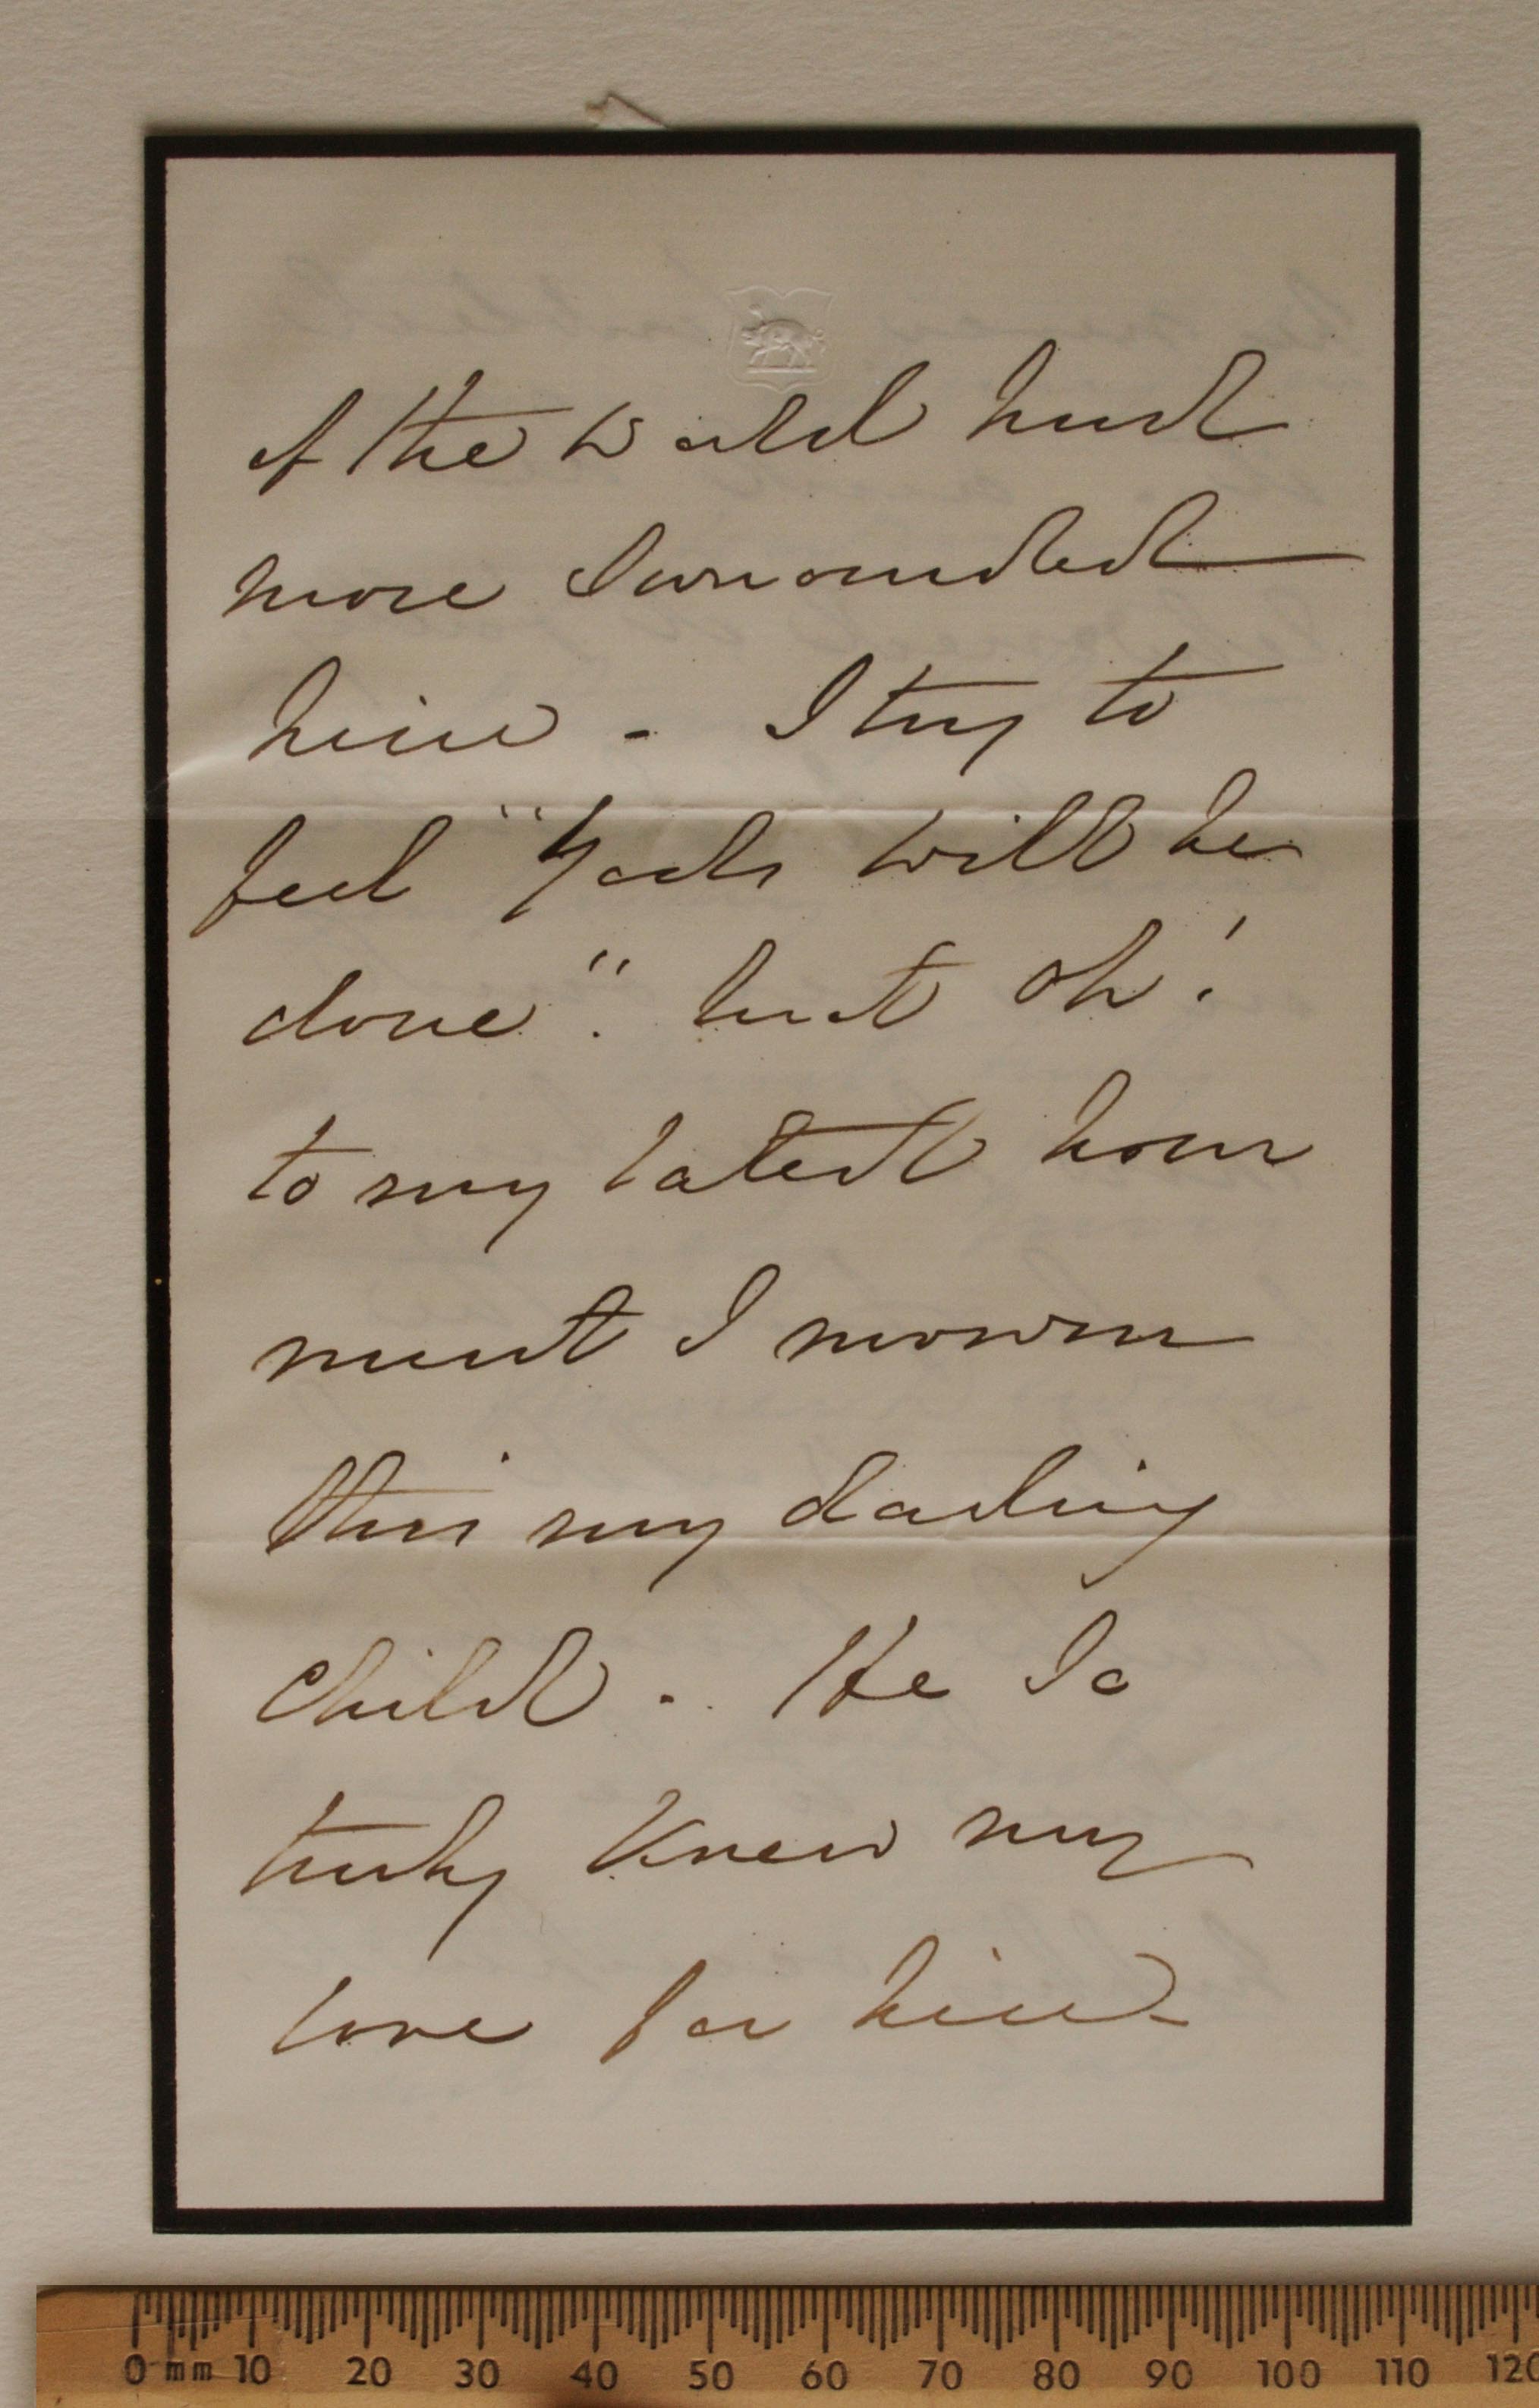 of the world had
more surrounded
him - I try to
feel "Gods will be
done". but oh!
to my latest hour
must I mourn
this my darling
child. He so
truly knew my
love for him -
0 mm 10 20 30 40 50 60 70 80 90 100 110 120